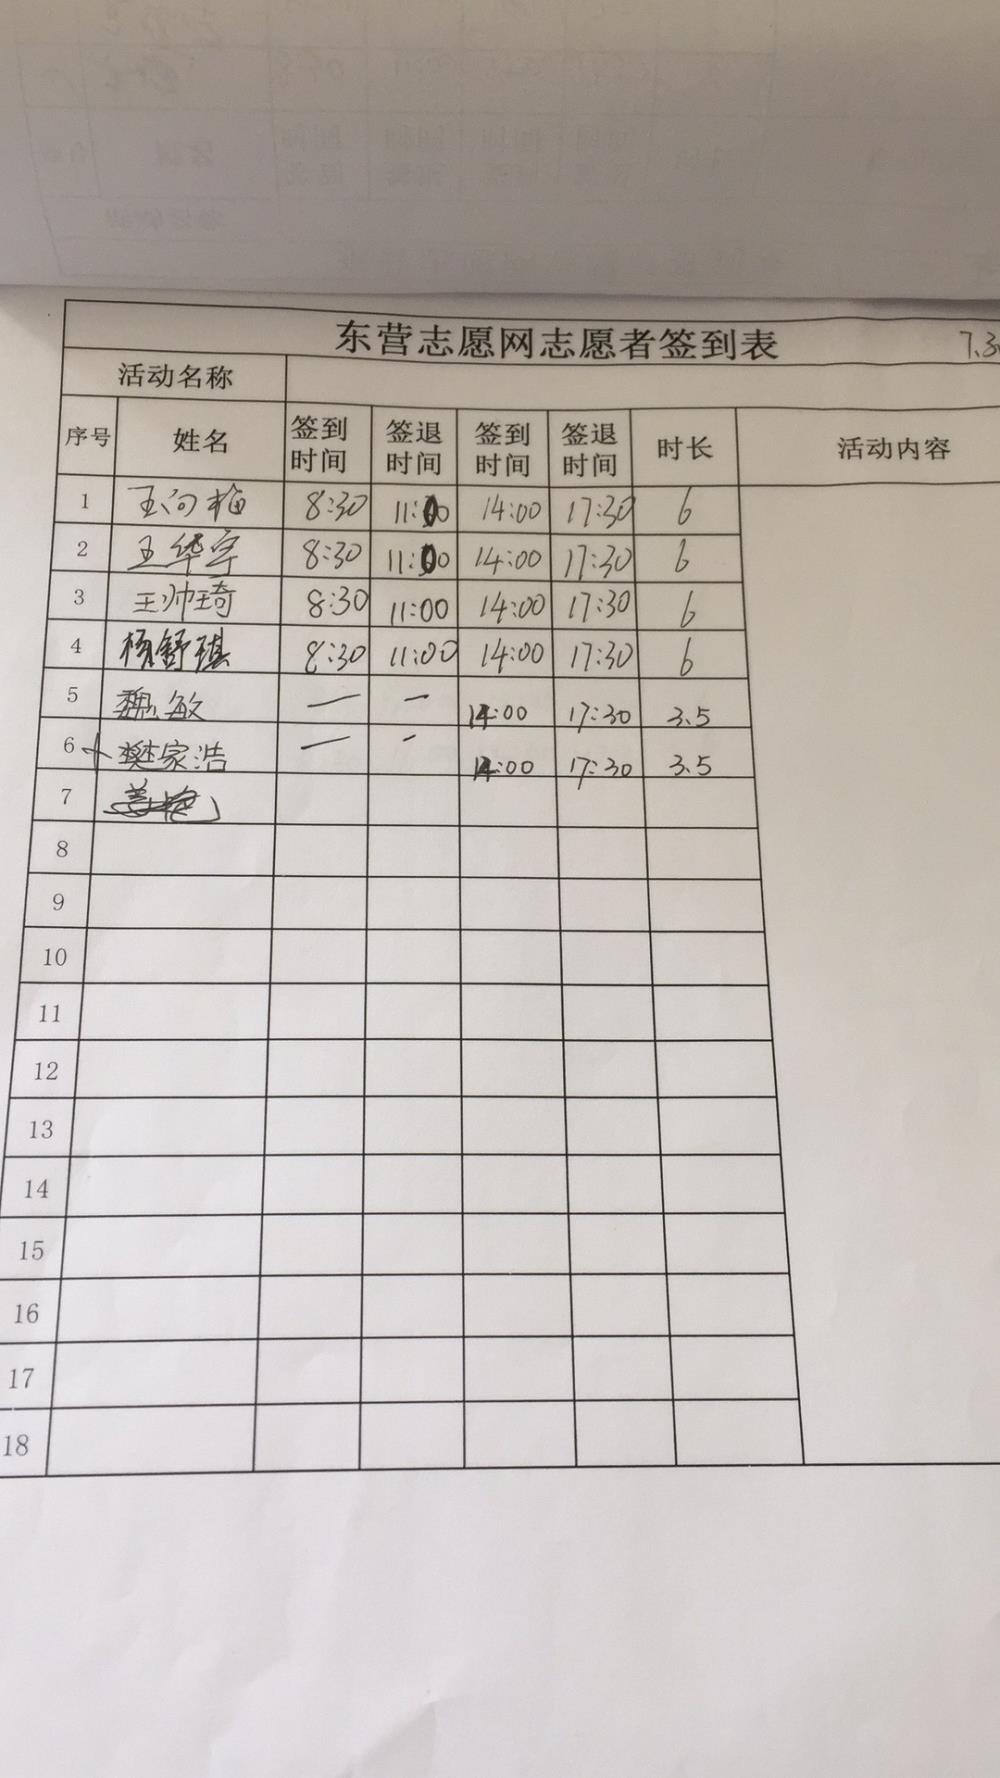 东营志愿网志愿者签到表
活动名称
序号 姓名 签到时间 签退时间 签到时间 签退时间 时长 活动内容
1 8:30 11:00 14:00 17:30 6
2 王华宇 8:30 11:00 14:00 17:30 6
3 王帅琦 8:30 11:00 14:00 17:30 6
4 杨舒琪 8:30 11:00 14:00 17:30 6
5 魏敏 — — 14:00 17:30 3.5
6 樊家浩 — — 14:00 17:30 3.5
7
8
9
10
11
12
13
14
15
16
17
18